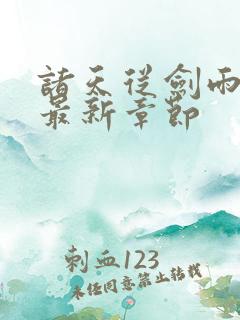 諸天從劍雨
最新章節
刺血123
未經同意禁止轉載